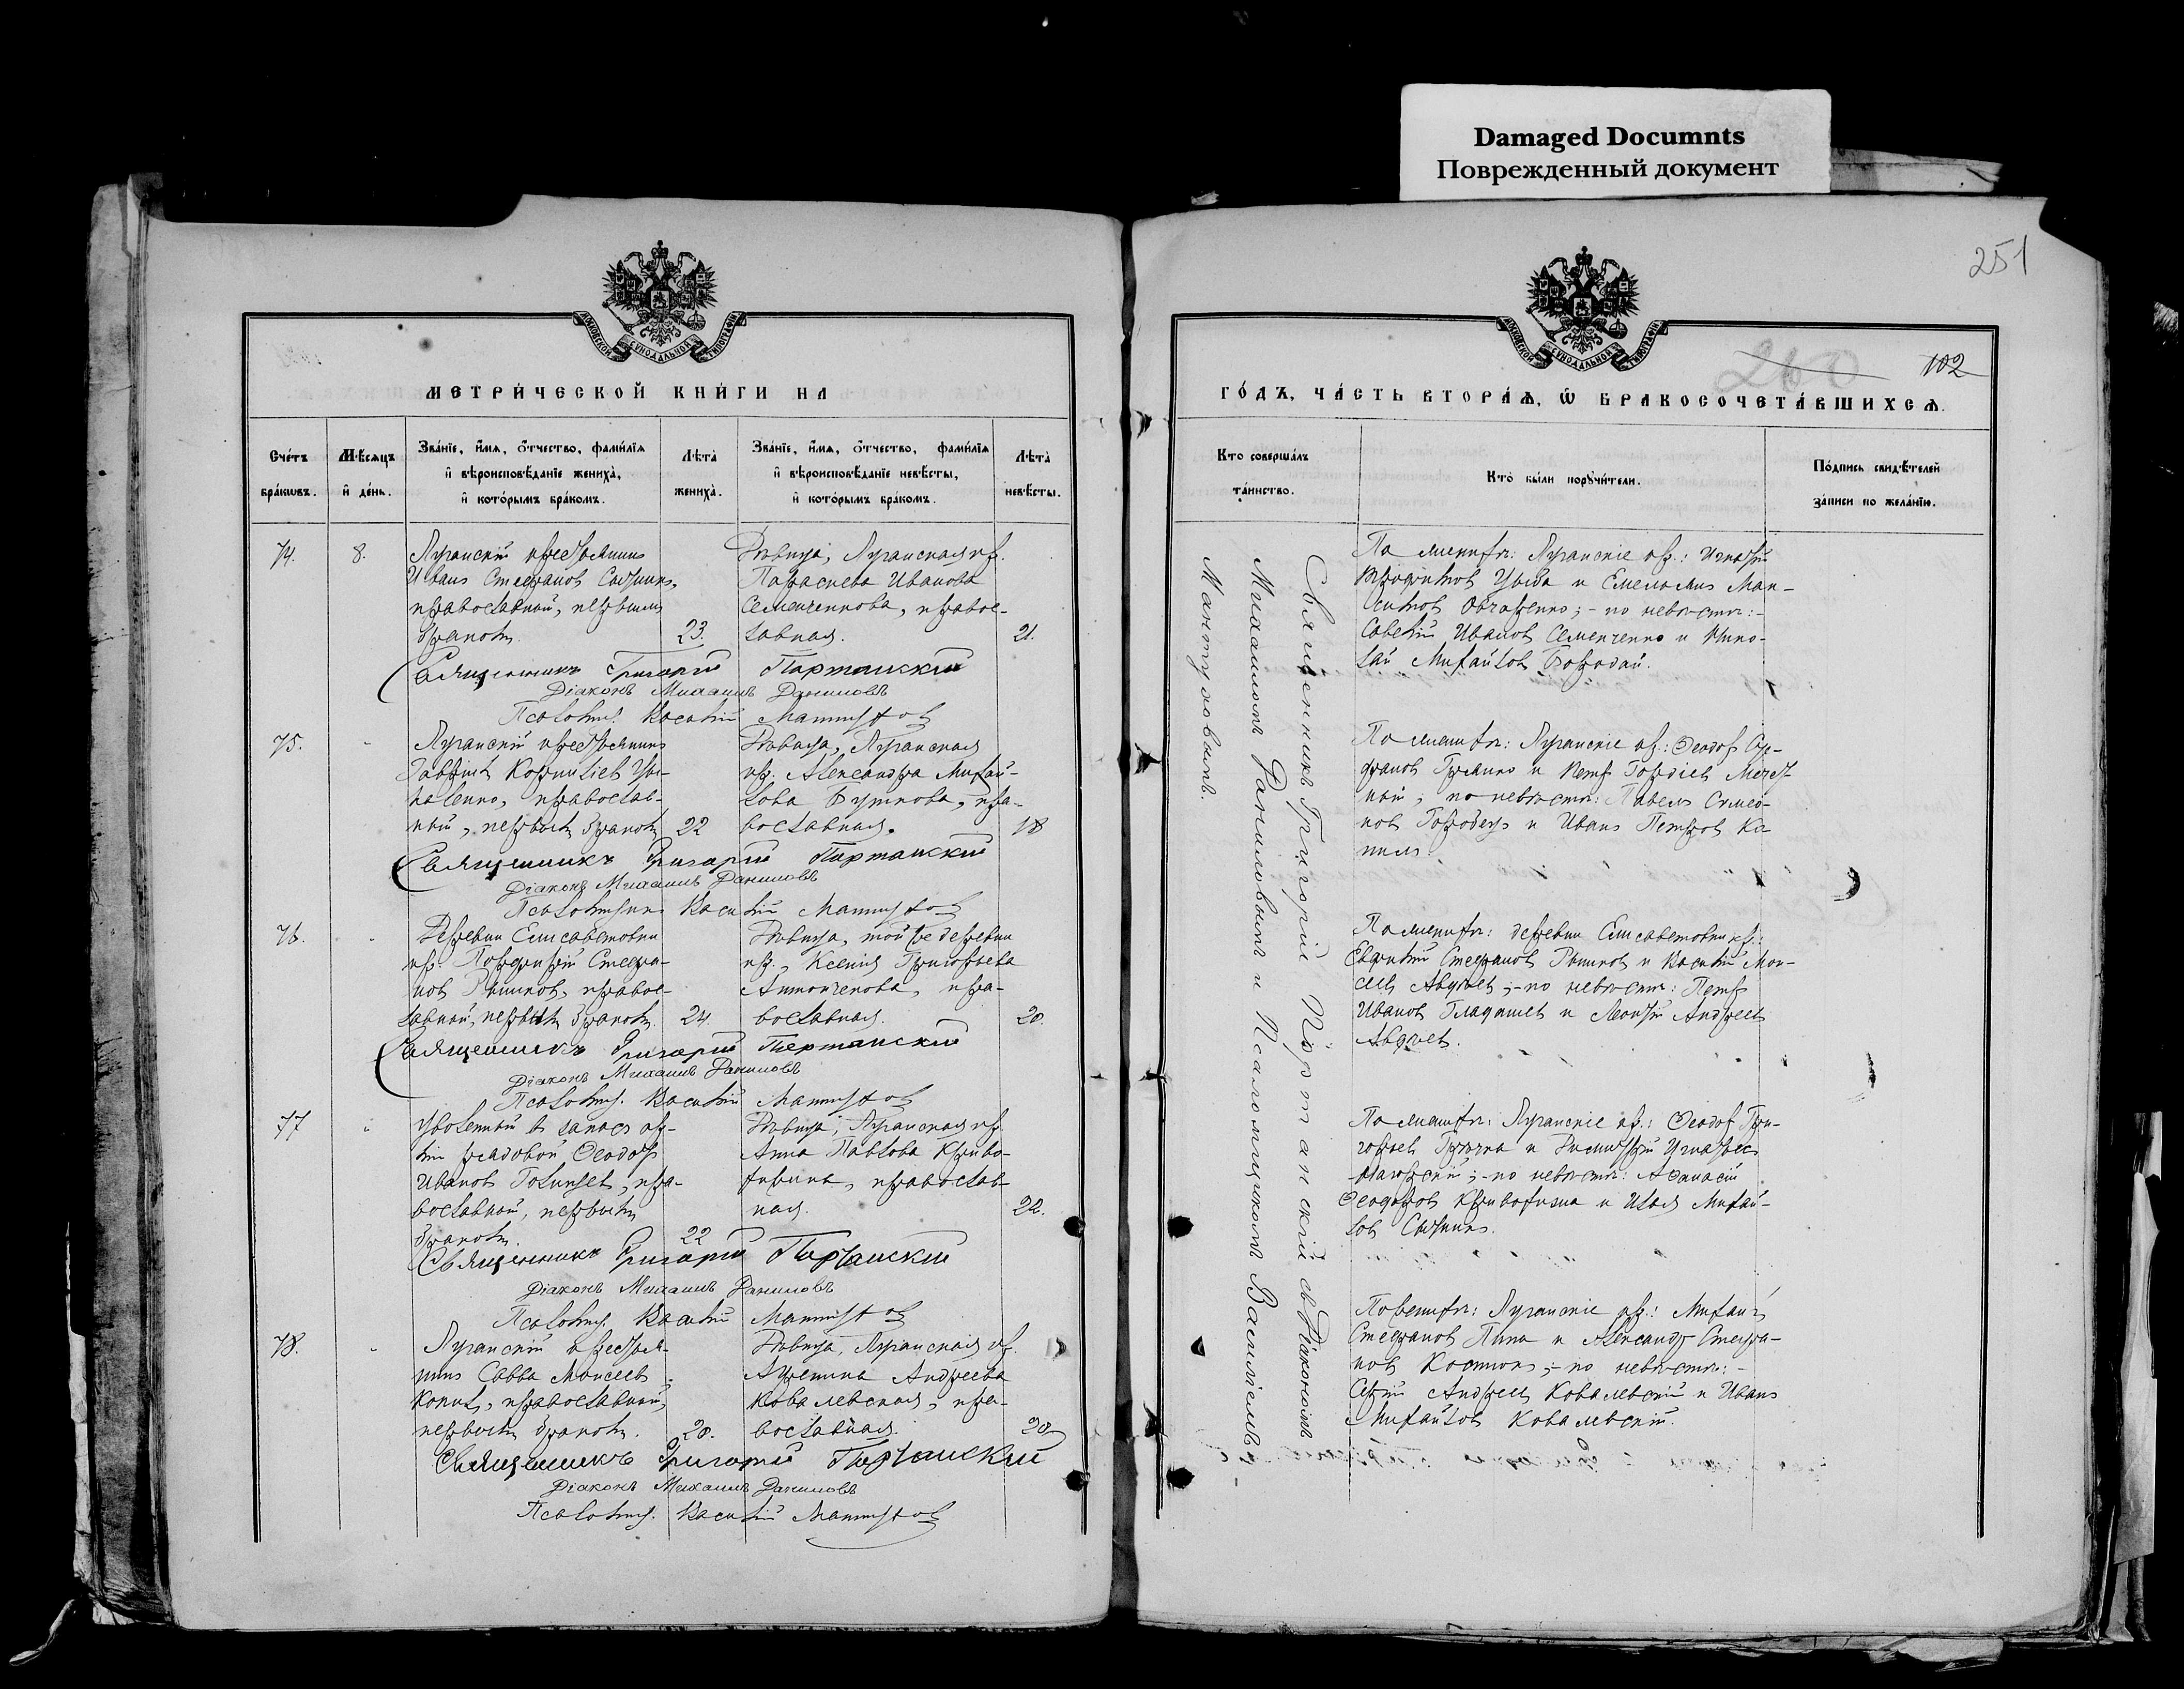 Damaged Documnts
Поврежденный документ
251
МОСКОВСКОЙ СѴНОДАЛЬНОЙ ТИПОГРАФІИ
МЕТРИ́ЧЕСКОЙ КНИ́ГИ НА
Сче́тъ бра́ковъ.
Мѣ́сяцъ и҆ де́нь.
Зва́нїе, и҆́мѧ, ѻ҆́тчество, фами́лїѧ и҆ вѣроисповѣ́данїе жениха̀, и҆ кото́рымъ бра́комъ.
Лѣ́та жениха̀.
Зва́нїе, и҆́мѧ, ѻ҆́тчество, фами́лїѧ и҆ вѣроисповѣ́данїе невѣ́сты, и҆ кото́рымъ бра́комъ.
Лѣ́та невѣ́сты.
74.
8.
Луганскій крестьянинъ
Иванъ Стефановъ
православный, первымъ
бракомъ.
23.
Дѣвица, Луганская кр.
Параскева Иванова
Семенченкова, правос-
лавная.
21.
Священникъ Григорій Портанскій
Діаконъ Михаилъ Даниловъ
Псаломщ. Василій Мантуловъ
75.
"
Луганскій крестьянинъ
Гавріилъ Корниліевъ
православ-
ный, первымъ бракомъ
22
Дѣвица, Луганская
кр. Александра Михай-
лова Буткова, пра-
вославная.
18
Священникъ Григорій Портанскій
Діаконъ Михаилъ Даниловъ
Псаломщикъ Василій Мантуловъ
76.
"
Деревни Елисаветовки
кр. Порфирій Стефа-
новъ правос-
лавный, первымъ бракомъ.
24.
Дѣвица, той же деревни
кр. Ксенія Григорьева
Антонченкова, пра-
вославная.
20.
Священникъ Григорій Портанскій
Діаконъ Михаилъ Даниловъ
Псаломщ. Василій Мантуловъ
77
"
Уволенный въ запасъ ар-
міи рядовой Ѳеодоръ
Ивановъ пра-
вославный, первымъ
бракомъ.
22
Дѣвица, Луганская кр.
Анна Павлова Криво-
православ-
ная.
22.
Священникъ Григорій Портанскій
Діаконъ Михаилъ Даниловъ
Псаломщ. Василій Мантуловъ
78.
"
Луганскій крестья-
нинъ Савва Моисеевъ
православный,
первымъ бракомъ.
20.
Дѣвица, Луганская кр.
Андреева
Ковалевская, пра-
вославная.
20
Священникъ Григорій Портанскій
Діаконъ Михаилъ Даниловъ
Псаломщ. Василій Мантуловъ
МОСКОВСКОЙ СѴНОДАЛЬНОЙ ТИПОГРАФІИ
260
102
ГО́ДЪ, ЧА́СТЬ ВТОРА́Ѧ, Ѽ БРАКОСОЧЕТА́ВШИХСѦ.
Кто соверша́лъ та́инство.
Кто̀ бы́ли порꙋчи́тели.
По́дпись свидѣ́телей за́писи по жела́нїю.
Священникъ Григорій Портанскій съ Діакономъ
Михаиломъ Даниловымъ и Псаломщикомъ Василіемъ
Мантуловымъ.
По женихѣ: Луганскіе кр.: Игнатій
Трофимовъ и Емельянъ Мак-
симовъ Овчаренко; - по невѣстѣ: -
Савелій Ивановъ Семенченко и Нико-
лай Михайловъ Бородай.
По женихѣ: Луганскіе кр.: Ѳеодоръ
и Петръ Гордіевъ
по невѣстѣ: Павелъ Симео-
новъ и Иванъ Петровъ Ка-
По женихѣ: деревни Елисаветовки кр.:
Евфимій Стефановъ и Василій Мои-
сеевъ Авдѣевъ; - по невѣстѣ: Петръ
Ивановъ Гладышевъ и Андреевъ
Авдѣевъ.
По женихѣ: Луганскіе кр.: Ѳеодоръ Гри-
горьевъ и Димитрій Игнатьевъ
по невѣстѣ: Аѳанасій
Ѳеодоровъ и Илья Михай-
ловъ
По женихѣ: Луганскіе кр.: Михаилъ
Стефановъ и Александръ Стефа-
новъ Костюкъ; - по невѣстѣ: -
Андреевъ Ковалевскій и Иванъ
Михайловъ Ковалевскій.